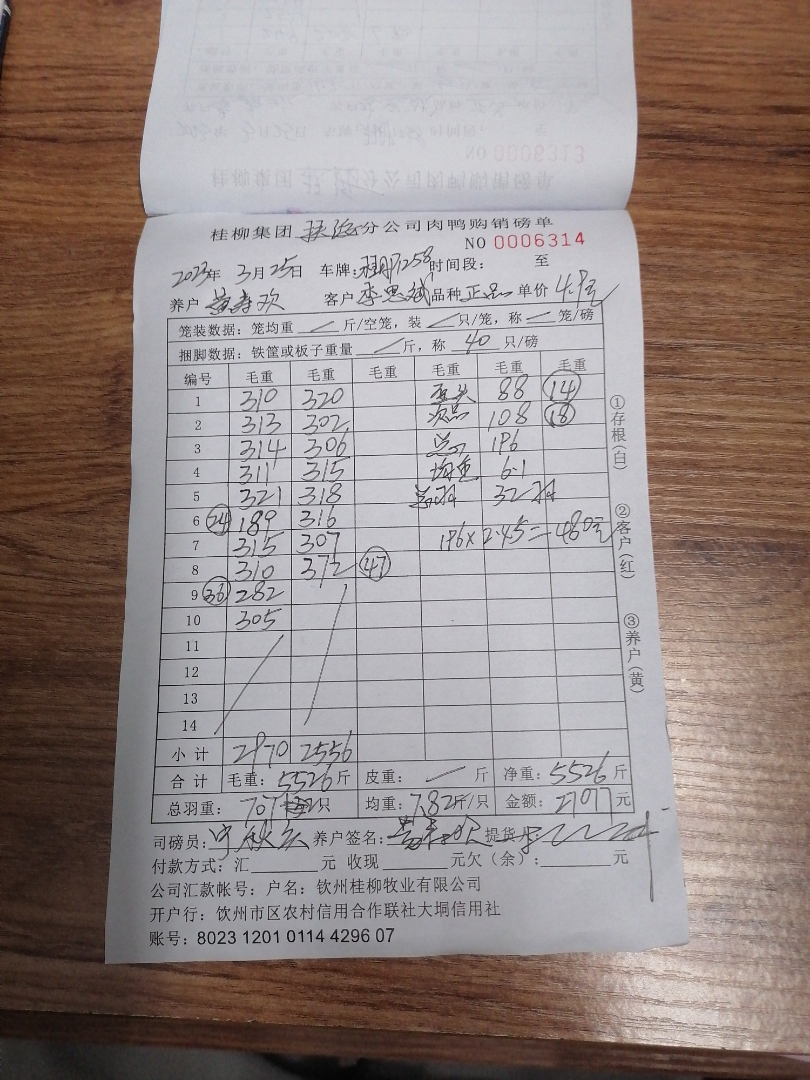 NO 0006313
桂柳集团 分公司肉鸭购销磅单
NO 0006314
2023年 3月25日 车牌: 7258 时间段: 至
养户 客户 李思斌 品种 正品 单价 4.9元
笼装数据: 笼均重 / 斤/空笼, 装 / 只/笼, 称 / 笼/磅
捆脚数据: 铁筐或板子重量 / 斤, 称 40 只/磅
编号 毛重 毛重 毛重 毛重 毛重 毛重
1 310 320 88 14
2 313 302 次品 108 18
3 314 306 196
4 311 315 均重 6.1
5 321 318 32
6 24 189 316
7 315 307 196×2.45=480元
8 310 372 47
9 36 282
10 305
11
12
13
14
小计 2970 2556
合计 毛重: 5526斤 皮重: / 斤 净重: 5526斤
总羽重: 707 只 均重: 7.82斤/只 金额: 27077元
司磅员: 养户签名: 提货人:
付款方式: 汇 元 收现 元欠(余): 元
公司汇款帐号: 户名: 钦州桂柳牧业有限公司
开户行: 钦州市区农村信用合作联社大垌信用社
账号: 8023 1201 0114 4296 07
①存根(白)
②客户(红)
③养户(黄)